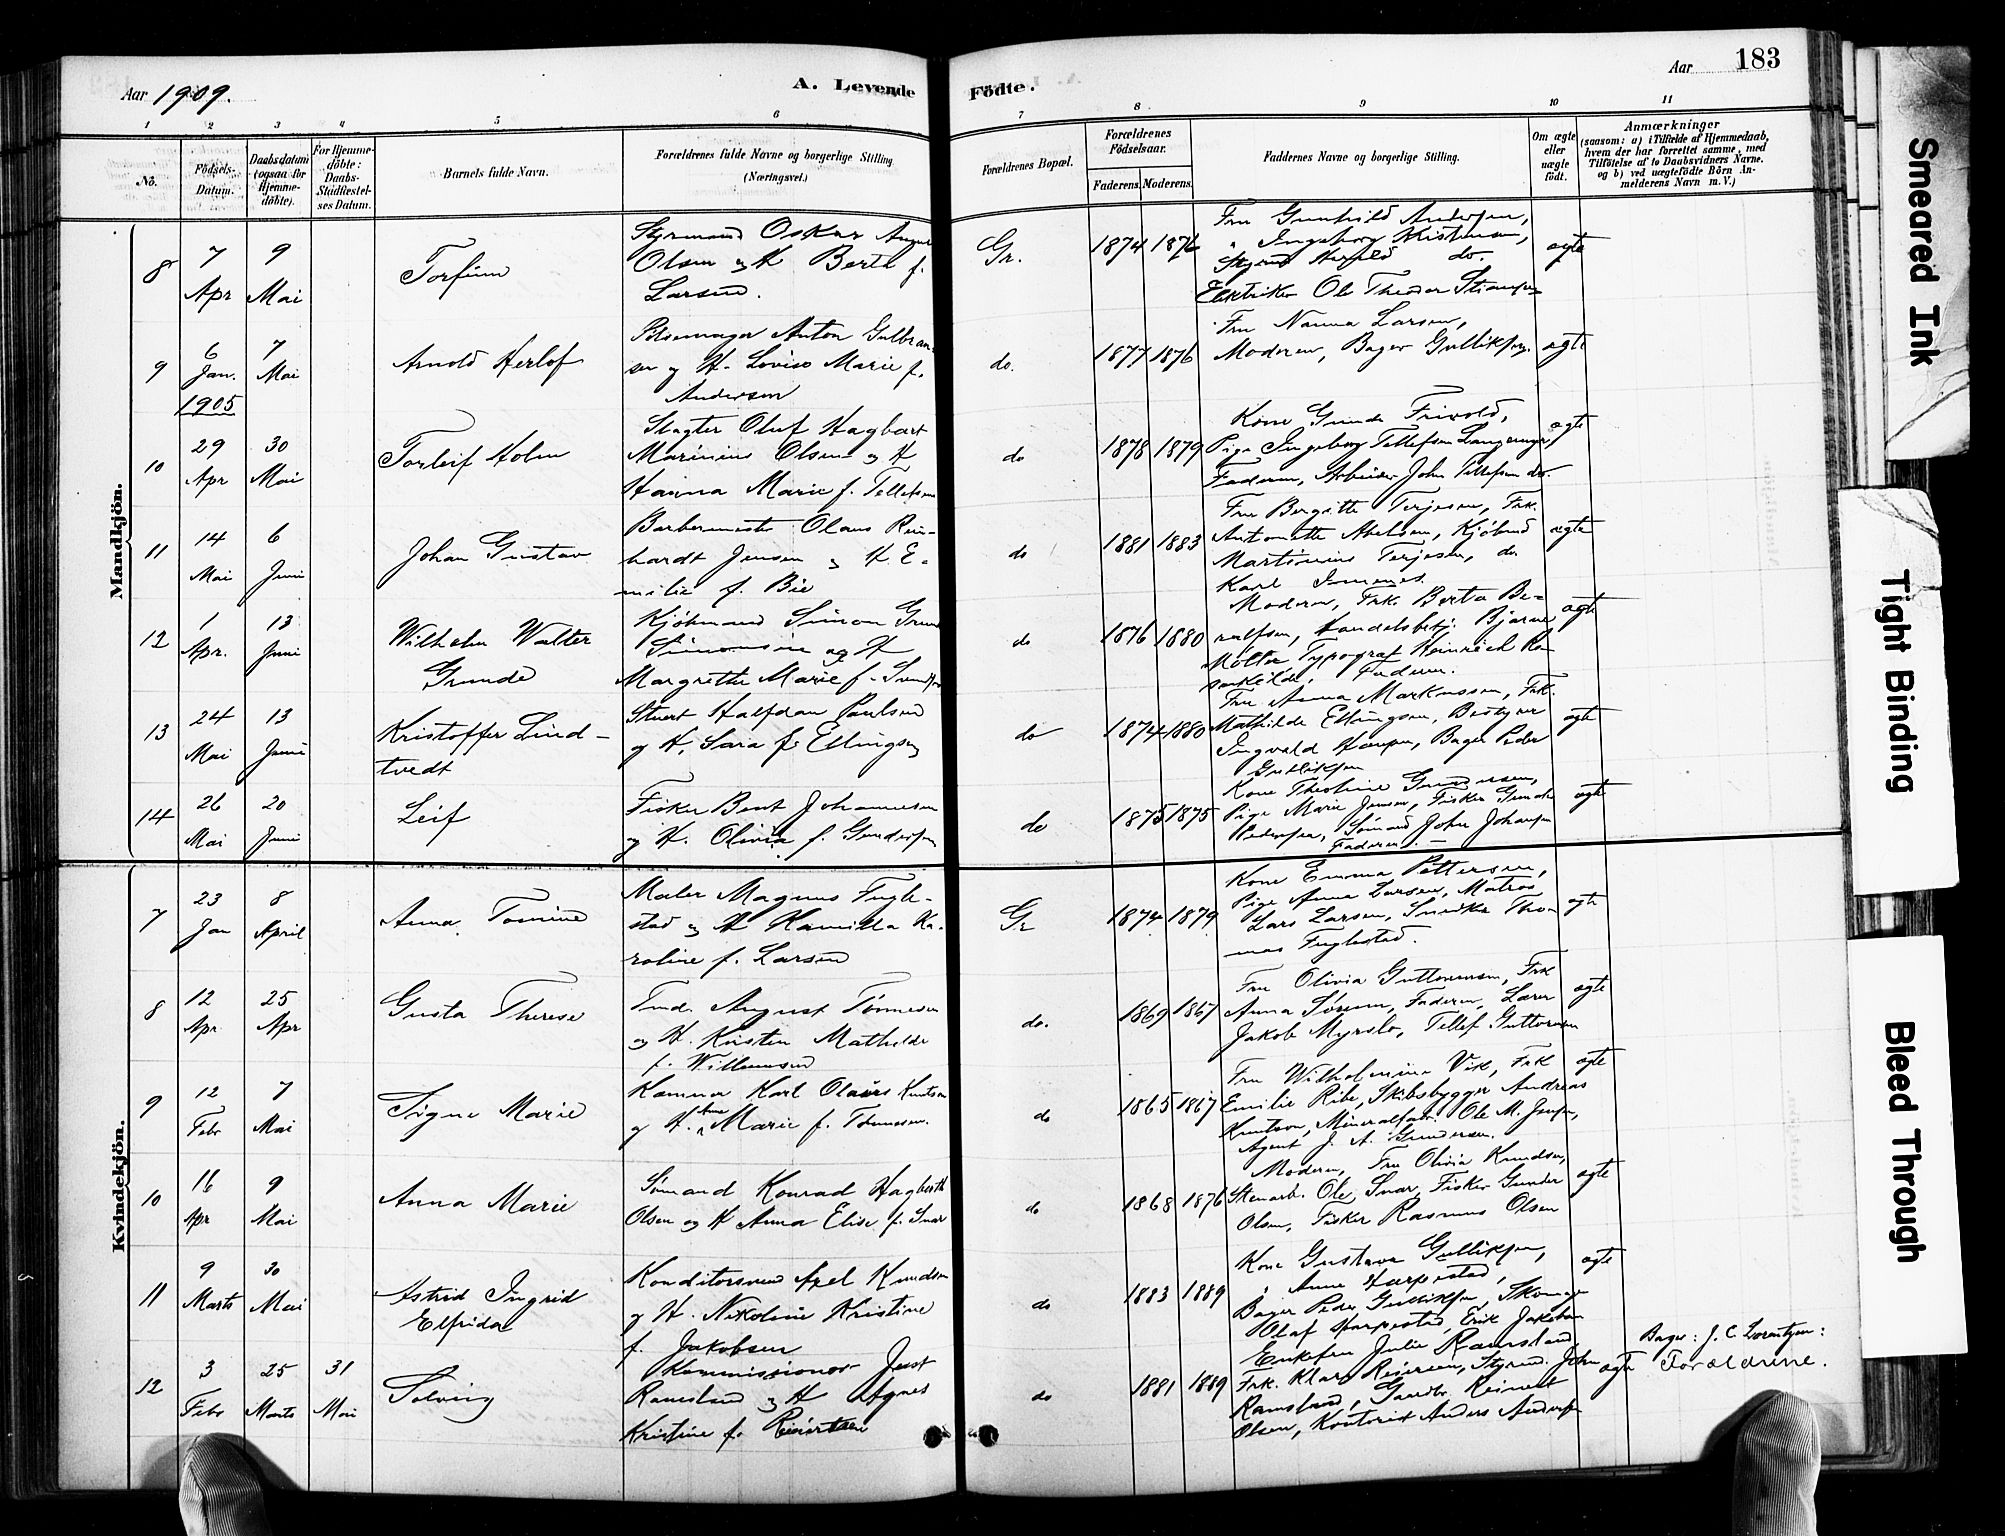 Aar 1909.
A. Levende
Födte.
Aar
183
1
2
3
4
5
6
7
8
9
10
11
No.
Födsels-Datum.
Daabsdatum (ogsaa for Hjemme-döbte).
For Hjemme-döbte: Daabs-Stadfæstel-ses Datum.
Barnets fulde Navn.
Forældrenes fulde Navne og borgerlige Stilling.
(Næringsvei.)
Forældrenes Bopæl.
Forældrenes Födselsaar.
Faderens.
Moderens.
Faddernes Navne og borgerlige Stilling.
Om ægte eller uægte födt.
Anmærkninger
(saasom: a) i Tilfælde af Hjemmedaab, hvem der har forrettet samme, med Tilföielse af to Daabsvidners Navne. og b) ved uægtefödte Börn An-melderens Navn m. V.)
Mandkjön.
8
7 Apr
9 Mai
Torfinn
Styrmand Oskar August
Olsen og H Berte f.
Larsen.
Gr.
1874
1876
Fru Gunhild Andersen,
" Ingeborg Kristensen,
do.
Elektriker Ole Theodor
ægte
9
6 Jan. 1905
7 Mai
Arnold Herlof
Pølsemager Anton Gulbran-
sen og H. Lovise Marie f.
Andersen
do.
1877
1876
Fru Nanna Larsen,
Moderen, Bager Gulliksen.
ægte
10
29 Apr
30 Mai
Torleif Holm
Slagter Oluf Hagbart
Marinius Olsen og H
Hanna Marie f. Tellefsen
do
1878
1879
Kone Gunda Frivold,
Pige Ingeborg Tellefsen Langemyr
Faderen, Arbeider John Tellefsen do.
ægte
11
14 Mai
6 Juni
Johan Gustav
Barbermester Olaus Rein-
hardt Jensen og H E-
milie f. Bie
do
1881
1883
Fru Bergitte Terjesen, Frk.
Antonette Abelsen, Kjøbmd
Martinius Terjesen, do
Karl
ægte
12
1 Apr.
13 Juni
Wilhelm Walter
Grunde
Kjøbmand Simon
Simonsen og H
Margrethe Marie f.
do
1876
1880
Moderen, Frk. Berta Be-
rulfsen, Handelsbetj. Bjarne
Møller Typograf Heinrich Ro-
senkilde, Faderen.
ægte
13
24 Mai
13 Juni
Kristoffer Lind-
tvedt
Stuert Halfdan Paulsen
og H. Sara f. Ellingsen
do
1874
1880
Fru Anna Markussen, Frk.
Mathilde Ellingsen, Bestyrer
Ingvald Hansen, Bager Peder
Gulliksen
ægte
14
26 Mai
20 Juni
Leif
Fisker Bent Johannesen
og H. Olivia f. Gundersen
do
1875
1875
Kone Theoline Gundersen,
Pige Marie Jensen, Fisker Gunder
Pedersen, Sømand John Johansen
Faderen. —
ægte
Kvindekjön.
7
23 Jan
8 April
Anna Tomine
Maler Magnus Fugle-
stad og H Kamilla Ka-
roline f. Larsen
Gr
1874
1879
Kone Emma Pettersen,
Pige Anna Larsen, Matros
Lars Larsen, Snedker Tho-
mas Fuglestad.
ægte
8
12 Apr
25 Apr
Gusta Therese
Tmd. August Tønnesen
og H. Kristen Mathilde
f. Willumsen
do.
1869
1867
Fru Olivia Guttormsen, Frk
Anna Sørensen, Faderen, Lærer
Jakob Myrslo, Tellef Guttormsen
ægte
9
12 Febr
7 Mai
Signe Marie
Karl Olaus Knutson
og H. Anne Marie f. Tønnesen.
do
1865
1867
Fru Wilhelmine Vik, Frk
Emilie Ribe, Skibsbygger Andreas
Knutson, Mineralfabr. Ole M. Jensen,
Agent J. A. Gundersen.
ægte
10
16 Apr
9 Mai
Anna Marie
Sømand Konrad Hagbarth
Olsen og H Anna Elise f. Snar
do
1868
1876
Moderen, Fru Olivia Knudsen,
Stenarb. Ole Snar, Fisker Gunder
Olsen, Fisker Rasmus Olsen
ægte
11
9 Marts
30 Mai
Astrid Ingrid
Elfrida
Konditorsvend Axel Knudsen
og H. Nikoline Kristine
f. Jakobsen
do
1883
1889
Kone Gustava Gulliksen,
" Anne Harpestad,
Bager Peder Gulliksen, Skomager
Olaf Harpestad, Erik Jakobsen
ægte
12
3 Febr
25 Marts
31 Mai
Solveig
Kommissionær Just
Ramsland og H Agnes
Kristine f. Reiersen
do
1881
1889
Enkefru Julie Ramsland
Frk. Klara Reiersen, Styrmd. John
Ramsland, Gaardbr. Reinert
Olsen, Kontorist Anders Andersen
ægte
Bager: J. C. Lorentzen:
Forældrene.
Smeared Ink
Tight Binding
Bleed Through